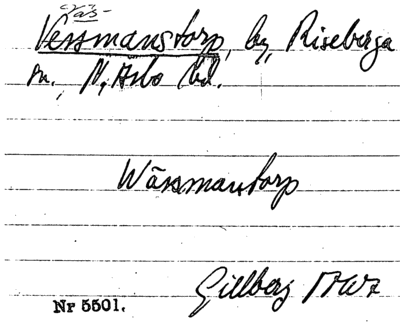 Väs-
Vessmanstorp, by, Riseberga
sn., N. Åsbo hd.
Wässmanstorp
Gillberg 1767
Nr 5501.